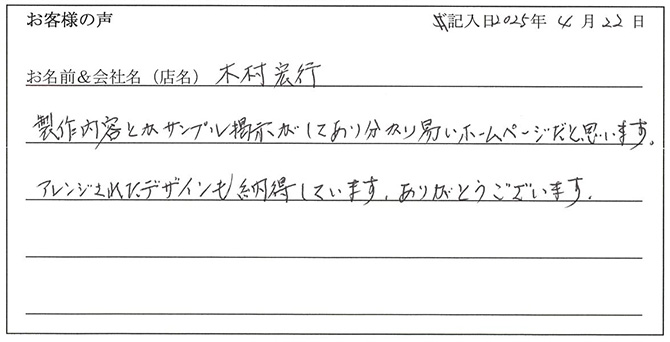 お客様の声
ご記入日2025年 4月22日
お名前&会社名（店名） 木村宏行
製作内容とかサンプル掲示がしてあり分かり易いホームページだと思います。
アレンジされたデザインも納得しています。ありがとうございます。